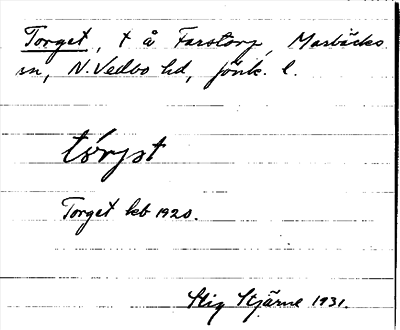 Torget, t å Farstorp, Marbäcks
sn, N. Vedbo hd, Jönk. l.
tórjət
Torget kb 1920.
Stig Stjärne 1931.